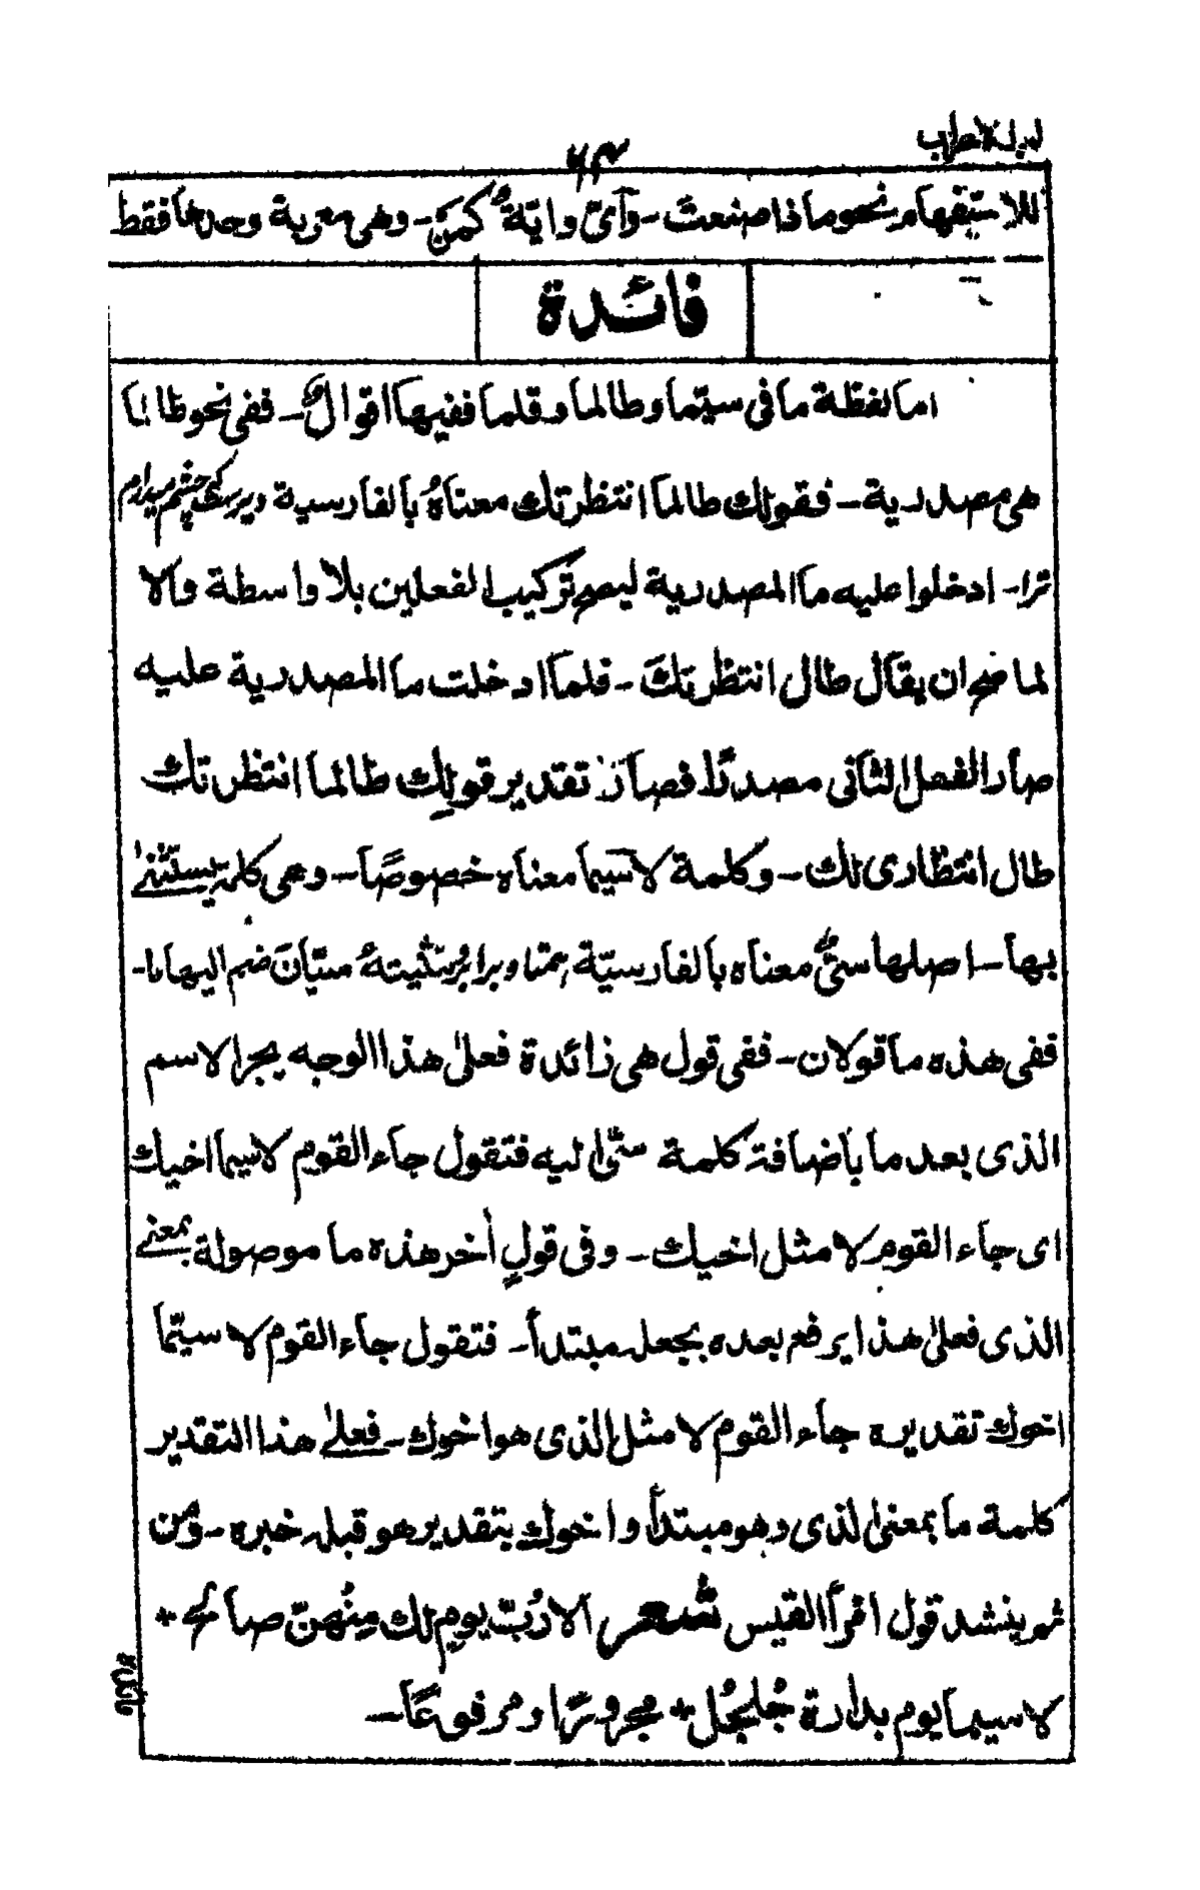 ٦٣
للاستفهام نحو ما ذا صنعت - وأيّ واية كمن - وهى معربة وحدها فقط
فائدة
اما لفظة ما فى سيّما وطالما وقلما ففيها اقوالٌ - ففى نحو طالما
هى مصدرية - فقولك طالما انتظرتك معناهُ بالفارسية ديرست كه چشم ميدارم
ترا - ادخلوا عليه ما المصدرية ليصح تركيب الفعلين بلا واسطة والا
لما صح ان يقال طال انتظرتك - فلما ادخلت ما المصدرية عليه
صار الفعل الثانى مصدرًا فصار تقدير قولك طالما انتظرتك
طال انتظارى لك - وكلمة لا سيما معناه خصوصًا - وهى كلمة يستثنى
بها - اصلها سىٌّ معناه بالفارسيّة همتا وبرابر تثنيته سيّان ضم اليها ما -
ففى هذه ما قولان - ففى قول هى زائدة فعلىٰ هذا الوجه يجر الاسم
الذى بعد ما باضافة كلمة سىّ اليه فتقول جاء القوم لا سيما اخيك
اى جاء القوم لا مثل اخيك - وفى قولٍ أخر هذه ما موصولة بمعنى
الذى فعلىٰ هذا يرفع بعده بجعله مبتدأ - فتقول جاء القوم لا سيّما
اخوك تقديره جاء القوم لا مثل الذى هو اخوك - فعلىٰ هذا التقدير
كلمة ما بمعنى الذى وهو مبتدأ واخوك بتقدير هو قبله خبره - ومن
ثم ينشد قول امرأ القيس شعر الا رُبّ يومٍ لك مِنْهُنّ صالح *
لا سيما يوم بدارة جُلجُل * مجرورًا ومرفوعًا -